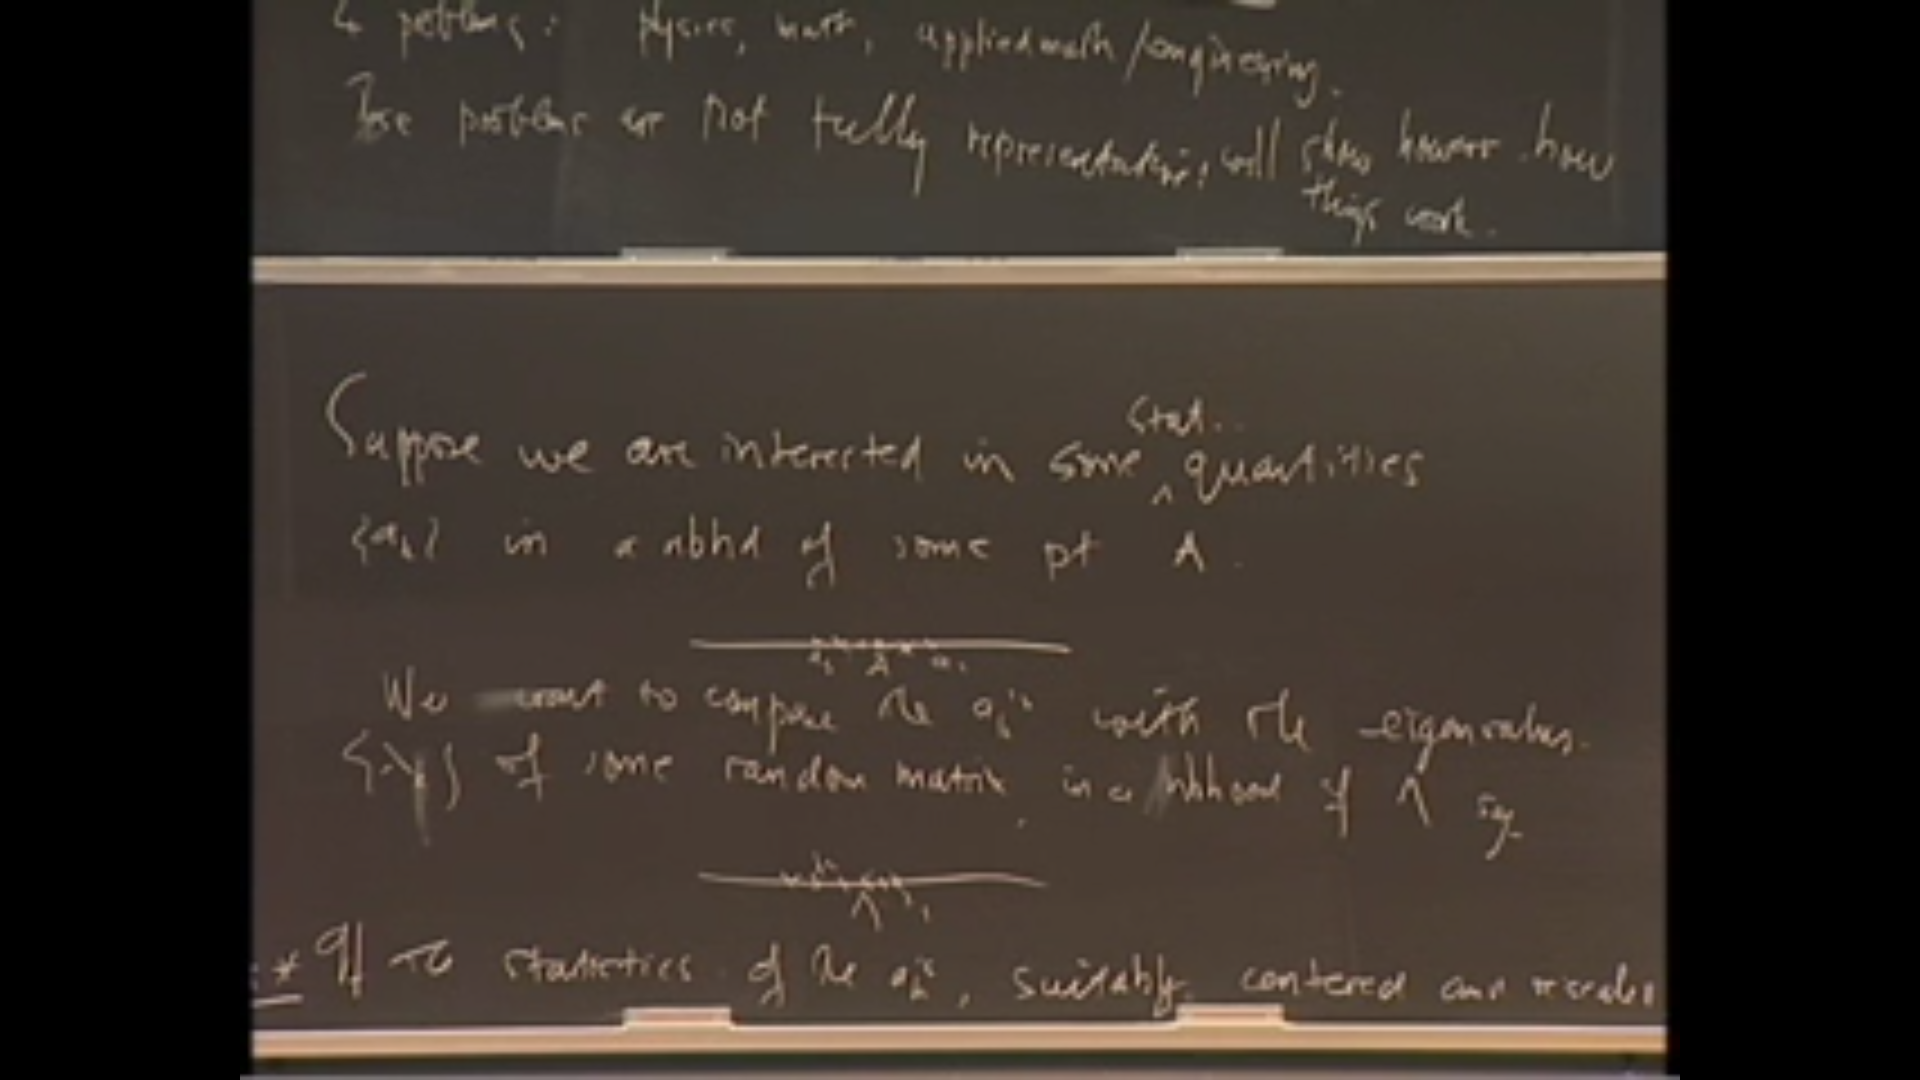 problems: physics, math, applied math/engineering.
These problems are not fully representative, will show however how
things work.
stat.
Suppose we are interested in some ^ quantities
{a_k} in a nbhd of some pt A.
a_k A a_1
We want to compare the a_k's with the eigenvalues
of some random matrix in a nbhood of Λ say
Λ
* If the statistics of the a_k's, suitably centered and